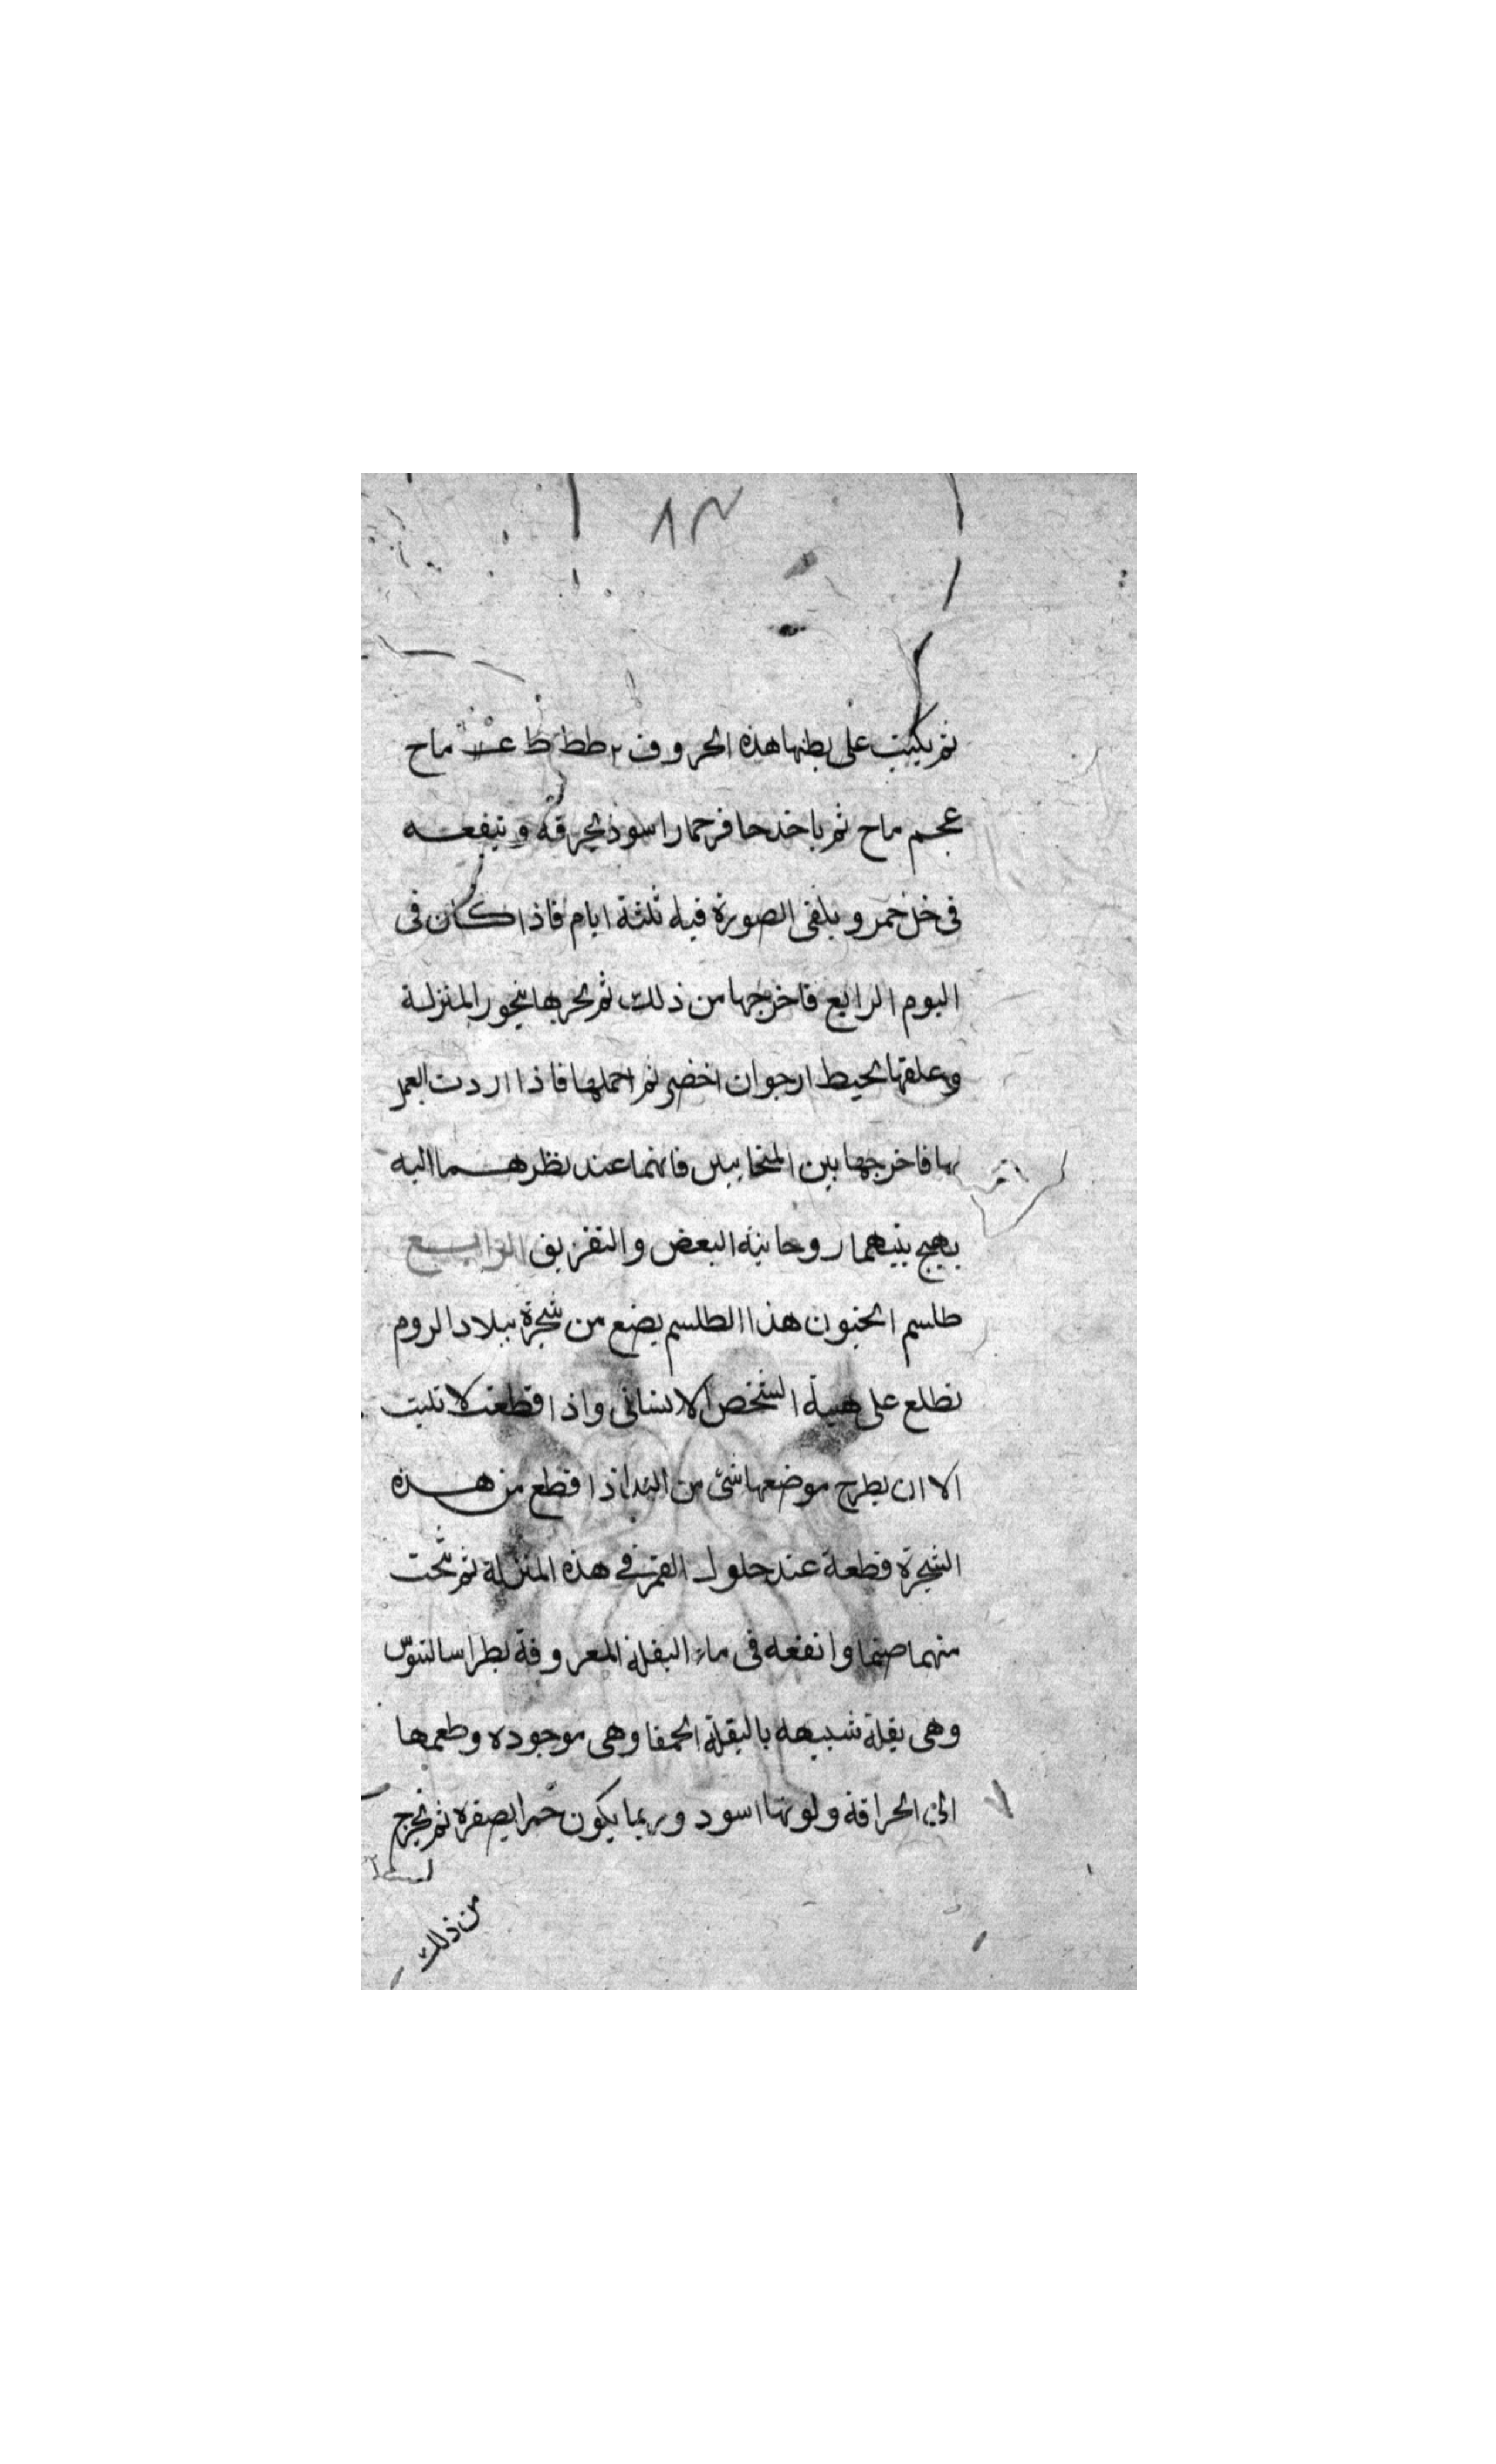 ٨٣
ثم يكتب على بطنها هذه الحروف ٢ ططط ظ ماح
عجم ماح ثم ياخذ حافر حمار اسود يحرقه وينفعه
فى خل خمر ويلقى الصورة فيه ثلثة ايام فاذا كان فى
اليوم الرابع فاخرجها من ذلك ثم بخرها ببخور المنزلة
وعلقها بخيط ارجوان اخضر ثم احملها فاذا اردت العمل
بها فاخرجها بين المتحابين فانهما عند نظرهما اليه
يهيج بينهما روحانية البغض والتفريق الرابع
طلسم الجنون هذا الطلسم يصنع من شجرة ببلاد الروم
تطلع على هيئة الشخص الانسانى واذا قطعت لا تنبت
الا ان يطرح موضعها شئ من اذا قطع من هذه
الشجرة قطعة عند حلول القمر فى هذه المنزلة ثم نحت
منهما صنما وانقعه فى ماء البقلة المعروفة
وهى بقلة شبيهه بالبقلة الحمقا وهى موجوده وطعمها
الى الحراقة ولونها اسود وربما يكون حمرا بصفرة ثم يخرج
من ذلك